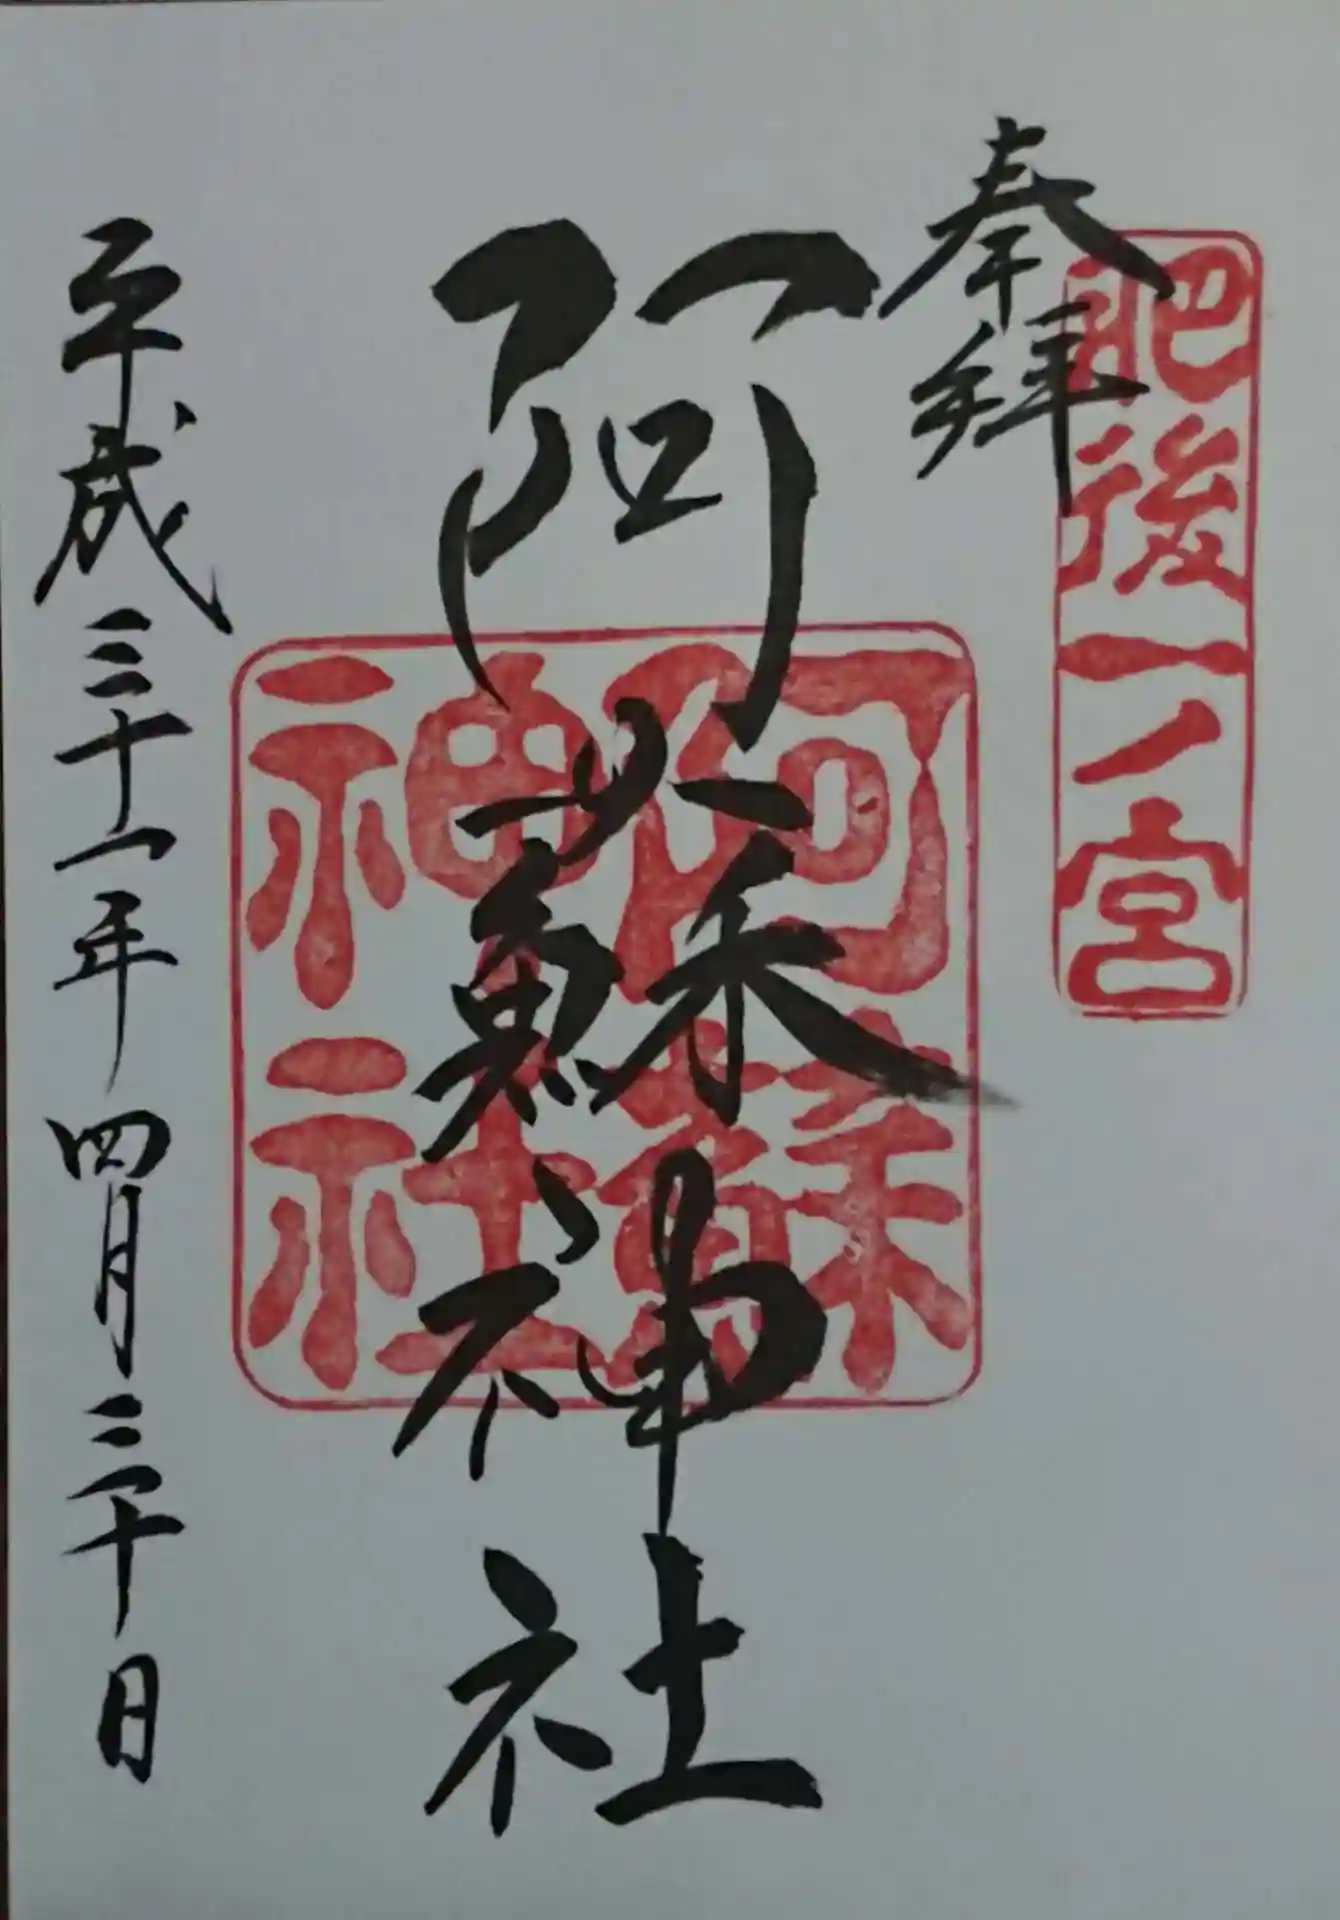 奉拝
肥後一ノ宮
阿蘇神社
阿蘇
神社
平成三十一年四月三十日